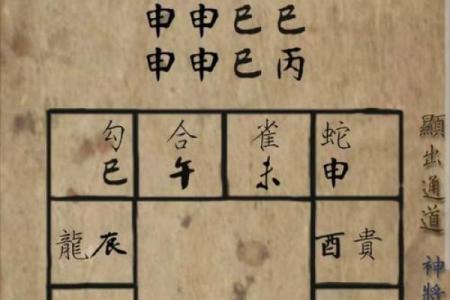 申申巳巳
申申巳丙
勾 合 雀 蛇
巳 午 未 申
龍辰 酉貴
顯出通道 神將